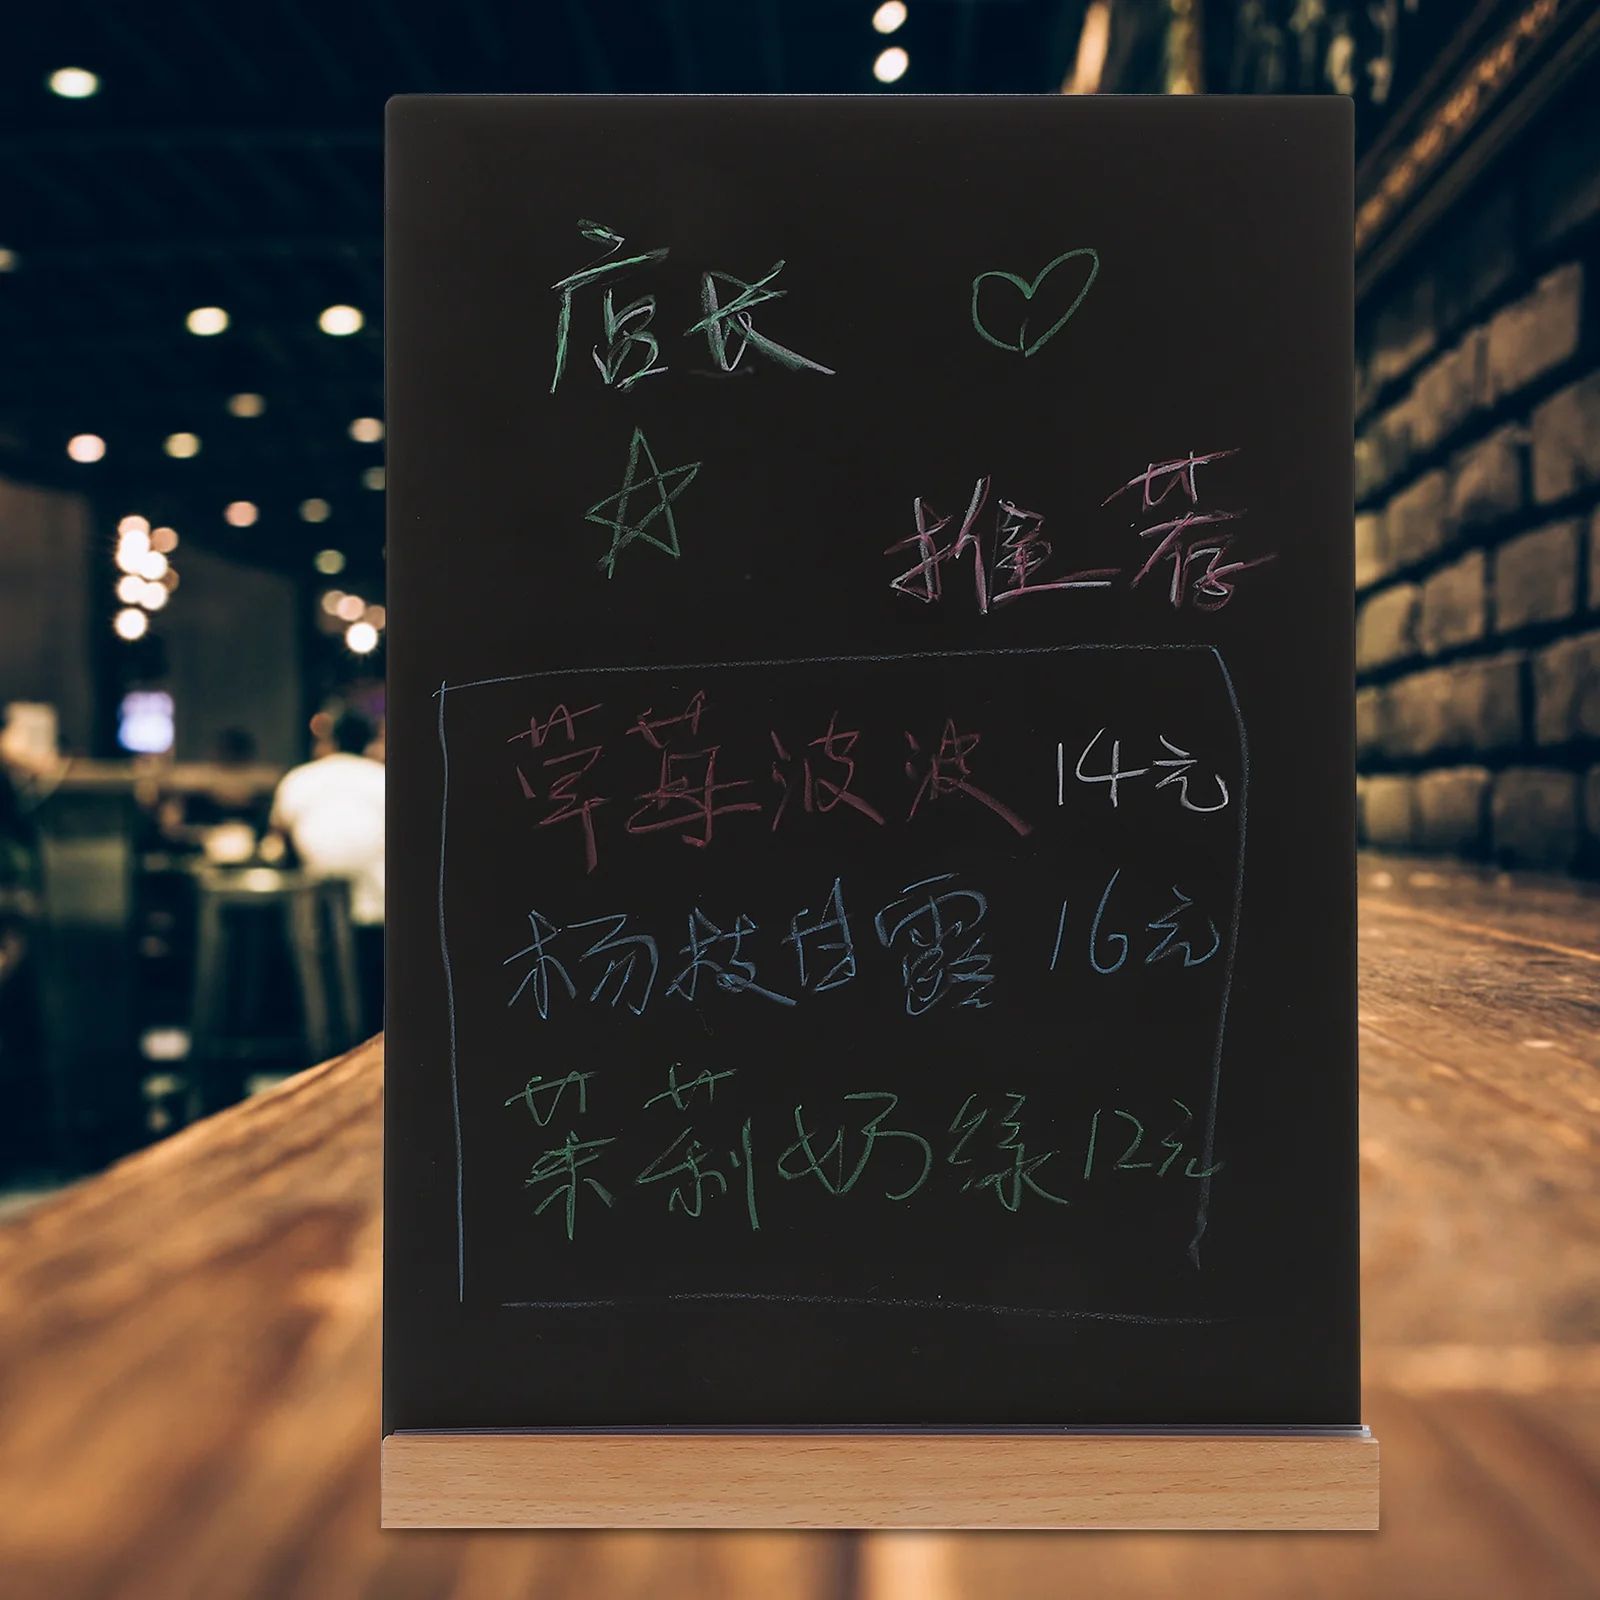 店长
推荐
草莓波波 14元
杨枝甘露 16元
茉莉奶绿 12元